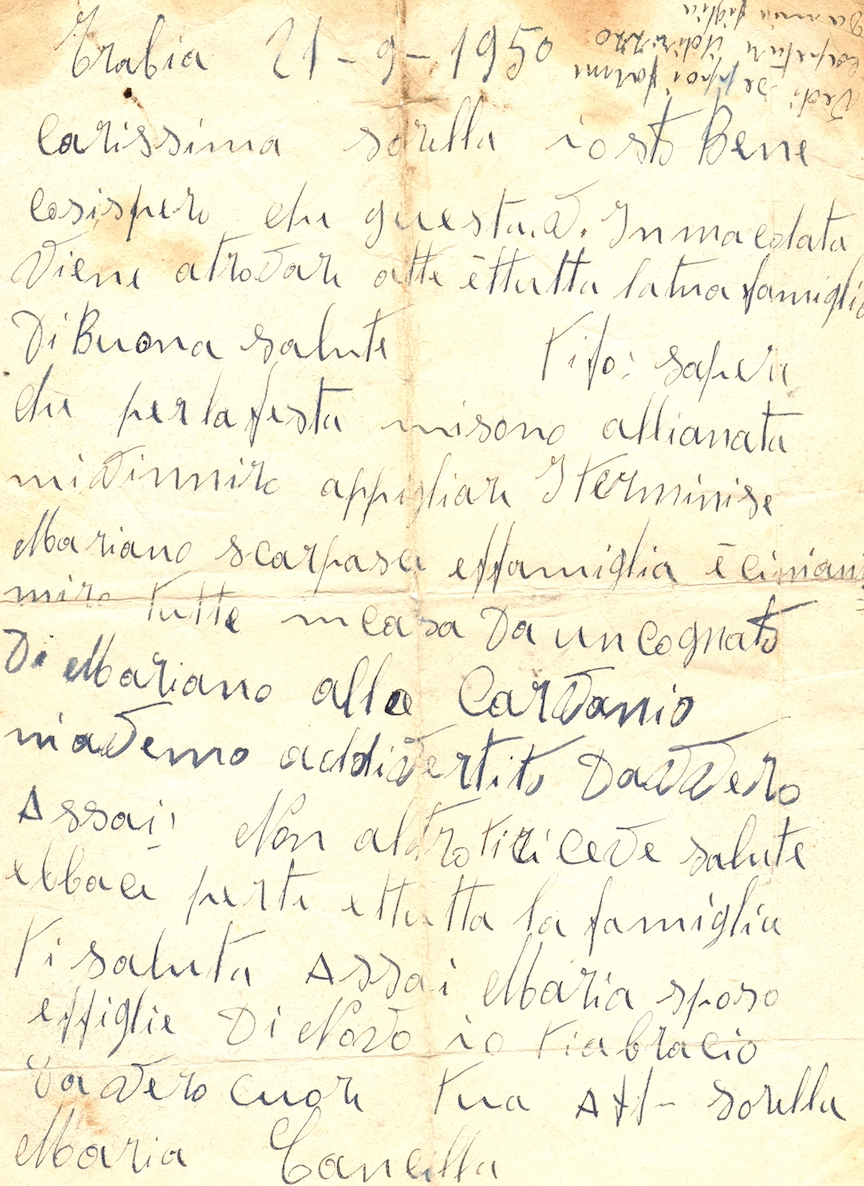 Trabia 21-9-1950
Carissima sorella iosto Bene
cosispero che questa.v. Inmacolata
viene atrovare atte èttutta latua famiglia
Di Buona salute Tifo: sapere
che perlafesta misono allianata
mi appigliare I Terminise
Mariano scarpase effamiglia è
tutte incasa Da un cognato
Di Mariano alla Cardonio
niavemo addivertito Davvero
Assai: Non altro Ticiceve salute
ebbaci perte ettutta la famiglia
Ti saluta Assai Maria sposo
effiglie Di Novo io Tiabracio
Davero cuore tua Aff- sorella
Maria Cancilla
Vedi se ppoi farmi
indirizzo
Da mia figlia